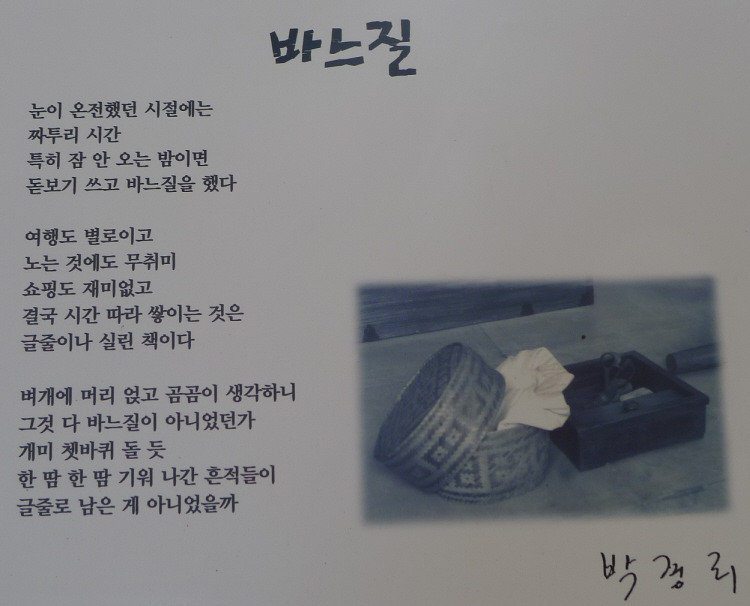 바느질
눈이 온전했던 시절에는
짜투리 시간
특히 잠 안 오는 밤이면
돋보기 쓰고 바느질을 했다
여행도 별로이고
노는 것에도 무취미
쇼핑도 재미없고
결국 시간 따라 쌓이는 것은
글줄이나 실린 책이다
벼개에 머리 얹고 곰곰이 생각하니
그것 다 바느질이 아니었던가
개미 쳇바퀴 돌 듯
한 땀 한 땀 기워 나간 흔적들이
글줄로 남은 게 아니었을까
박경리